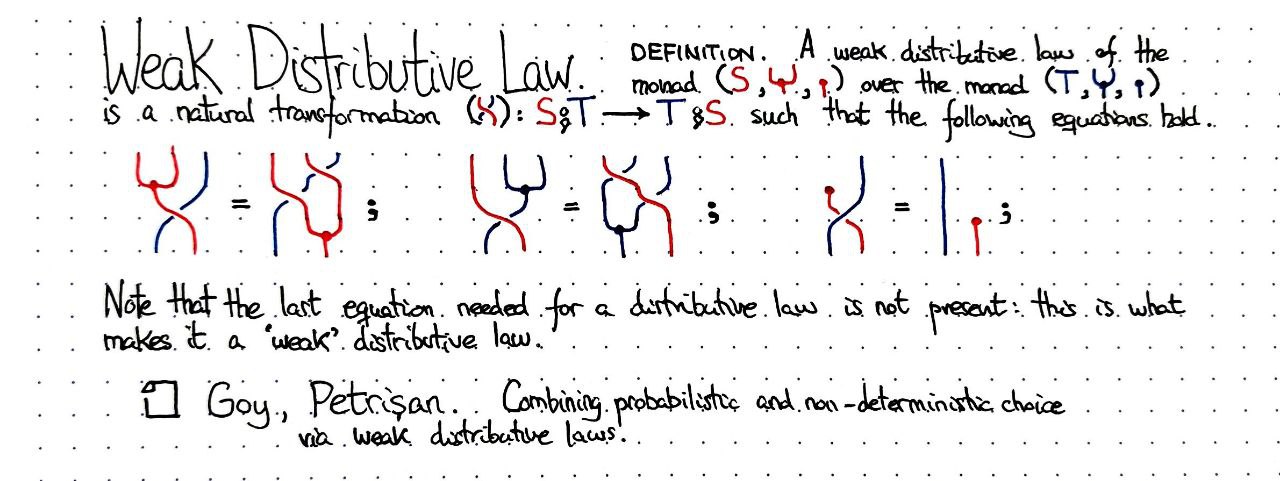 Weak Distributive Law.
DEFINITION. A weak distributive law of the
monad (S, , ) over the monad (T, , )
is a natural transformation ( ): S⨟T → T⨟S such that the following equations hold.
= ; = ; = ;
Note that the last equation needed for a distributive law is not present: this is what
makes it a "weak" distributive law.
Goy, Petrişan. Combining probabilistic and non-deterministic choice
via weak distributive laws.